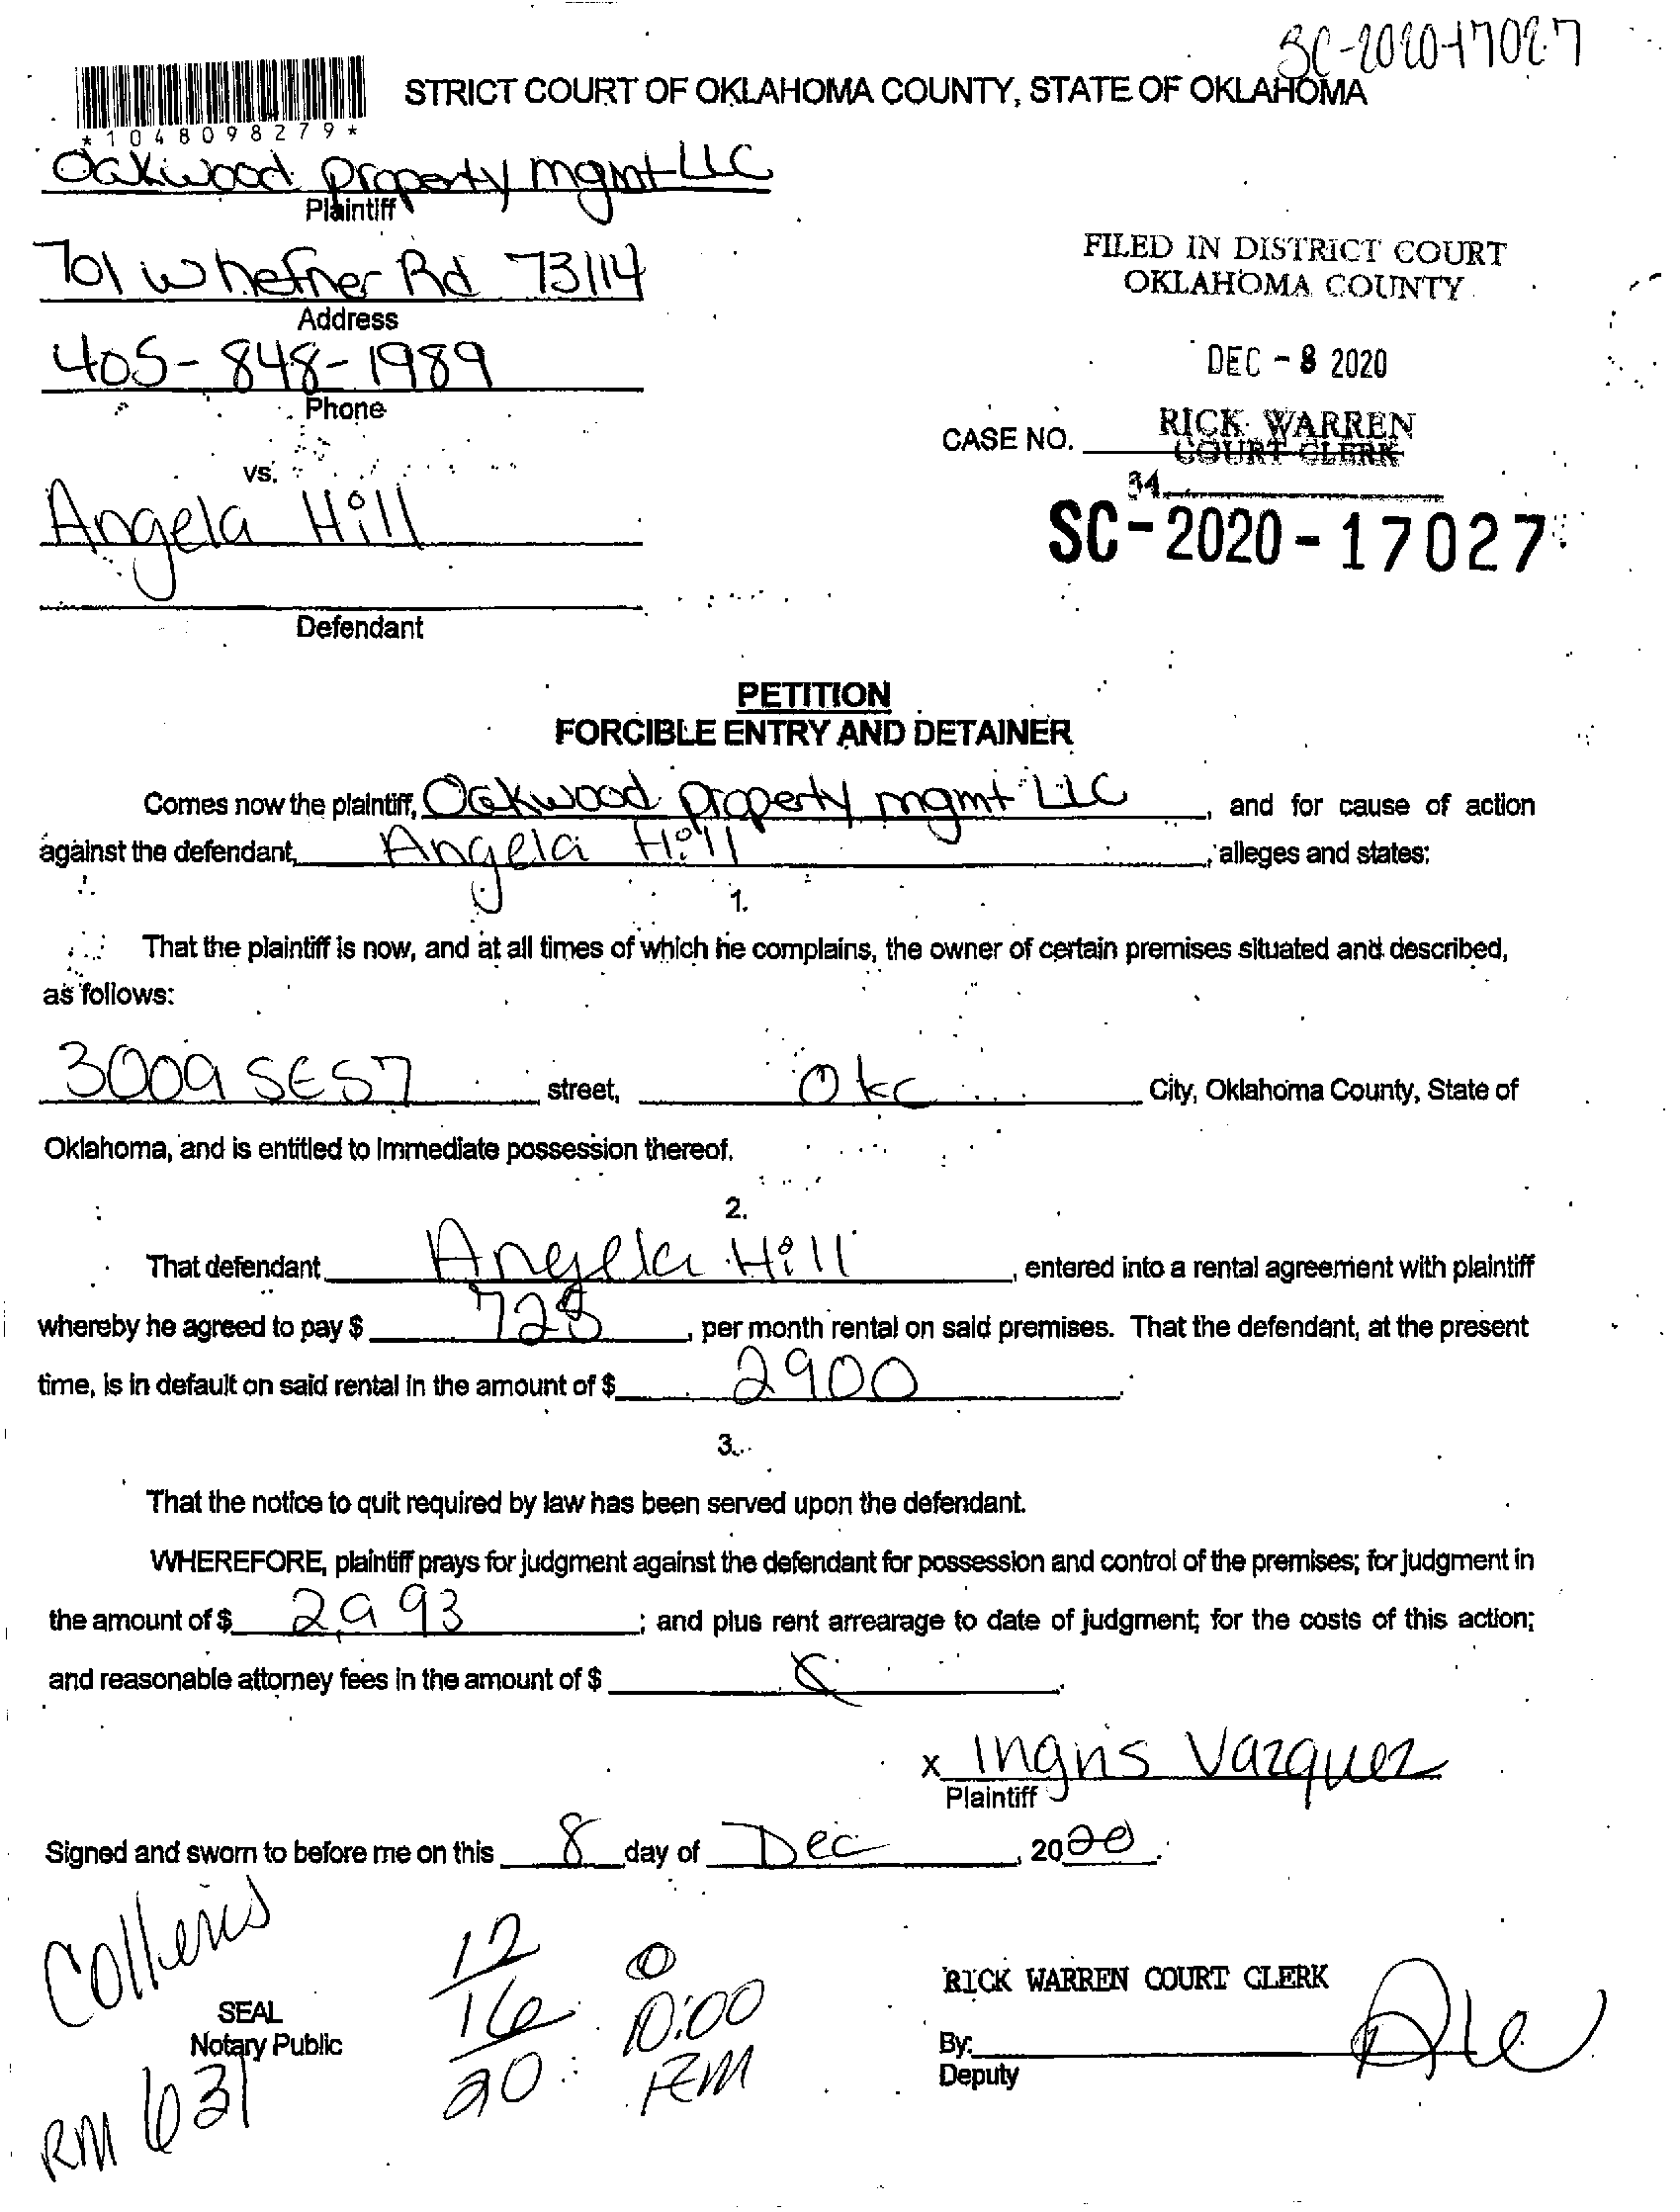 SC-2020-17027
STRICT COURT OF OKLAHOMA COUNTY, STATE OF OKLAHOMA
*1048098279*
Oakwood Property mgmt LLC
Plaintiff
701 W hefner Rd 73114
Address
405-848-1989
Phone
vs.
Angela Hill
Defendant
FILED IN DISTRICT COURT
OKLAHOMA COUNTY
DEC - 8 2020
RICK WARREN
COURT CLERK
CASE NO.
34
SC-2020-17027
PETITION
FORCIBLE ENTRY AND DETAINER
Comes now the plaintiff, Oakwood Property mgmt LLC, and for cause of action
against the defendant, Angela Hill, alleges and states:
1.
That the plaintiff is now, and at all times of which he complains, the owner of certain premises situated and described,
as follows:
3009 SE 57 street, Okc City, Oklahoma County, State of
Oklahoma, and is entitled to immediate possession thereof.
2.
That defendant Angela Hill, entered into a rental agreement with plaintiff
whereby he agreed to pay $ 725, per month rental on said premises. That the defendant, at the present
time, is in default on said rental in the amount of $ 2900.
3.
That the notice to quit required by law has been served upon the defendant.
WHEREFORE, plaintiff prays for judgment against the defendant for possession and control of the premises; for judgment in
the amount of $ 2,993; and plus rent arrearage to date of judgment; for the costs of this action;
and reasonable attorney fees in the amount of $
x Ingris Vazquez
Plaintiff
Signed and sworn to before me on this 8 day of Dec, 2020.
Collens
SEAL
Notary Public
RM 631
12
16
20
@
10:00
AM
RICK WARREN COURT CLERK
By:
Deputy